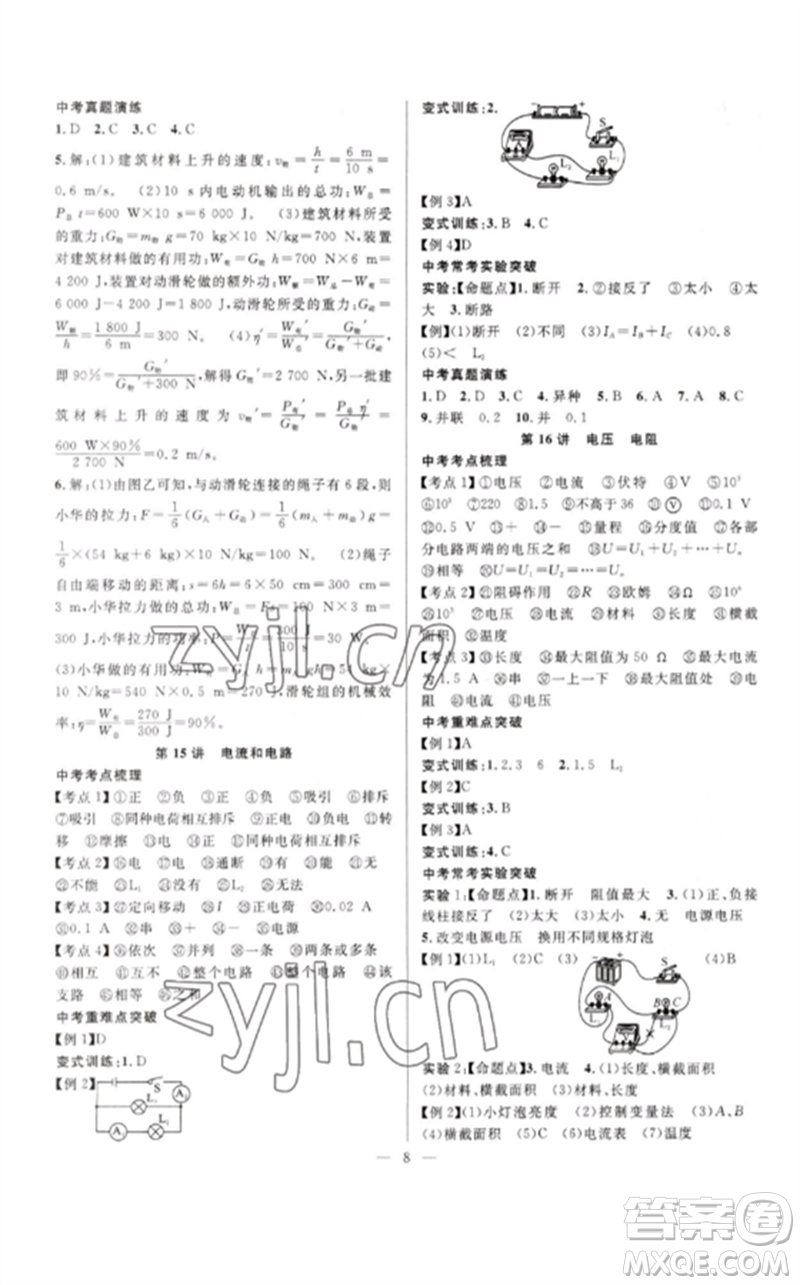 中考真题演练
1.D 2.C 3.C 4.C
5.解:(1)建筑材料上升的速度:v物=h/t=6 m/10 s=
0.6 m/s. (2)10 s内电动机输出的总功:W总=
P总t=600 W×10 s=6 000 J. (3)建筑材料所受
的重力:G物=m物g=70 kg×10 N/kg=700 N,装置
对建筑材料做的有用功:W有=G物h=700 N×6 m=
4 200 J,装置对动滑轮做的额外功:W额=W总-W有=
6 000 J-4 200 J=1 800 J,动滑轮所受的重力:G动=
W额/h=1 800 J/6 m=300 N. (4)η′=G物′/(G物′+G动),
即90%=G物′/(G物′+300 N),解得G物′=2 700 N,另一批建
筑材料上升的速度为v物′=P有′/G物′=P总η′/G物′=
600 W×90%/2 700 N=0.2 m/s.
6.解:(1)由图乙可知,与动滑轮连接的绳子有6段,则
小华的拉力:F=1/6(G人+G动)=1/6(m人+m动)g=
1/6×(54 kg+6 kg)×10 N/kg=100 N. (2)绳子
自由端移动的距离:s=6h=6×50 cm=300 cm=
3 m,小华拉力做的总功:W总=Fs=100 N×3 m=
300 J,小华拉力的功率:P=W总/t=300 J/10 s=30 W.
(3)小华做的有用功:W有=G人h=54 kg×
10 N/kg×0.5 m=270 J,滑轮组的机械效
率:η=W有/W总=270 J/300 J=90%.
第15讲 电流和电路
中考考点梳理
【考点1】①正 ②负 ③正 ④负 ⑤吸引 ⑥排斥
⑦吸引 ⑧同种电荷相互排斥 ⑨负 ⑩负 ⑪转
移 ⑫摩擦 ⑬正 ⑭电 ⑮同种电荷相互排斥
【考点2】⑯电 ⑰电 ⑱通断 ⑲有 ⑳能 ㉑无
㉒不能 ㉓L₁ ㉔L₂ ㉕L₁ ㉖L₂
【考点3】㉗定向移动 ㉘I ㉙正电荷 ㉚0.02 A
㉛0.1 A ㉜串 ㉝+ ㉞- ㉟电源
【考点4】㊱依次 ㊲并列 ㊳一条 ㊴两条或多条
㊵相互 ㊶互不 ㊷整个电路 ㊸整个电路 ㊹该
支路 ㊺相等 ㊻之和
中考重难点突破
【例1】D
变式训练:1.D
【例2】
S
A
L₂
A₁
L₁
变式训练:2.
- +
S
L₁
L₂
【例3】A
变式训练:3.B 4.C
【例4】D
中考常考实验突破
实验:【命题点】1.断开 2.②接反了 ③太小 ④太
大 3.断路
【例】(1)断开 (2)不同 (3)IA=IB+IC (4)0.8
(5)< L₂
中考真题演练
1.D 2.D 3.C 4.异种 5.B 6.A 7.A 8.C
9.并联 0.2 10.并 0.1
第16讲 电压 电阻
中考考点梳理
【考点1】①电压 ②电流 ③伏特 ④V ⑤10³
⑥10³ ⑦220 ⑧1.5 ⑨不高于36 ⑩Ⓥ ⑪0.1 V
⑫0.5 V ⑬+ ⑭- ⑮量程 ⑯分度值 ⑰各
部分电路两端的电压之和 ⑱U=U₁+U₂+…+Uₙ
⑲相等 ⑳U=U₁=U₂=…=Uₙ
【考点2】㉑阻碍作用 ㉒R ㉓欧姆 ㉔Ω ㉕10³
㉖10⁶ ㉗电压 ㉘电流 ㉙材料 ㉚长度 ㉛横截
面积 ㉜温度
【考点3】㉝长度 ㉞最大阻值为50 Ω ㉟最大电流
为1.5 A ㊱串 ㊲A ㊳B ㊴最大
㊵电流 ㊶电压
中考重难点突破
【例1】A
变式训练:1.2.3 6 2.1.5 L₂
【例2】C
变式训练:3.B
【例3】A
变式训练:4.C
中考常考实验突破
实验1:【命题点】1.断开 阻值最大 3.(1)正、负接
线柱接反了 (2)太大 (3)太小 4.无 电源电压
5.改变电源电压 换用不同规格灯泡
【例1】(1)L₁ (2)C (3)
S
A
B
C
L₁
L₂
实验2:【命题点】3.电流 4.(1)长度、横截面积
(2)材料、横截面积 (3)材料、长度
【例2】(1)小灯泡亮度 (2)控制变量法 (3)A、B
(4)横截面积 (5)C (6)电流表 (7)温度
— 8 —
zyjl.cn
zyjl.cn
答案圈
MXQE.COM